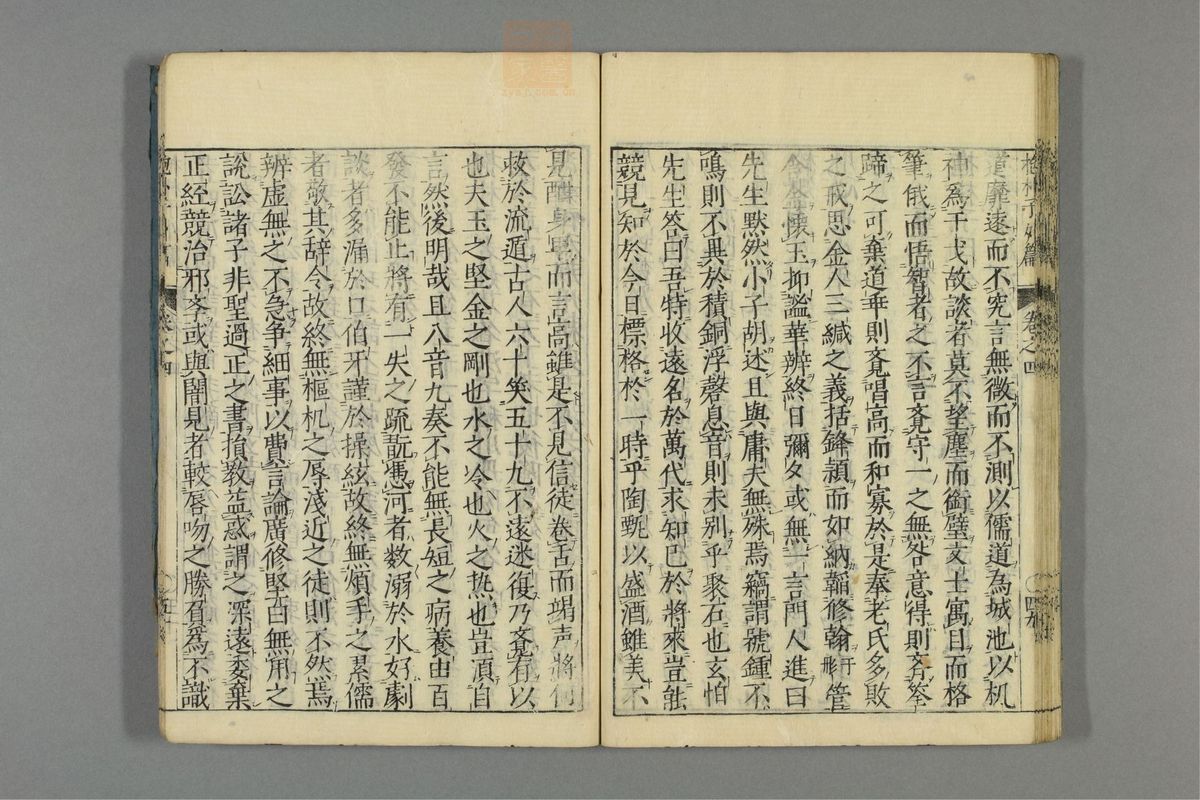 抱朴子外篇 卷之四 四九
道靡遠而不究言無微而不測以儒道為城池以机
神為干戈故談者莫不望塵而銜璧文士寓目而格
筆俄而悟智者之不言覺守一之無咎意得則齐筌
蹄之可棄道乖則覺唱高而和寡於是奉老氏多敗
之戒思金人三緘之義括鋒頴而如納韜修翰於彤管
含金懷玉抑謐華辨終日彌夕或無一言門人進曰
先生默然小子胡述且與庸夫無殊焉竊謂號鍾不
鳴則不異於積銅浮磬息音則未别乎聚石也玄怕
先生答曰吾特收遠名於萬代求知已於將來豈能
競見知於今日標格於一時乎陶甄以盛酒雖美不
見酣身卑而言高雖是不見信徒卷舌而竭声將何
救於流遁古人六十笑五十九不遠迷復乃覺有以
也夫玉之堅金之剛也水之冷也火之热也豈湏自
言然後明哉且八音九奏不能無長短之病養由百
發不能止將有一失之疏翫憑河者数溺於水好劇
談者多漏於口伯牙謹於操絃故終無煩手之累儒
者敬其辞令故終無樞机之辱淺近之徒則不然焉
辨虚無之不急争細事以費言論廣修堅白無用之
說訟諸子非聖過正之書損教益惑謂之深遠委棄
正经競治邪斈或與闇見者較唇吻之勝負為不識
卷之四